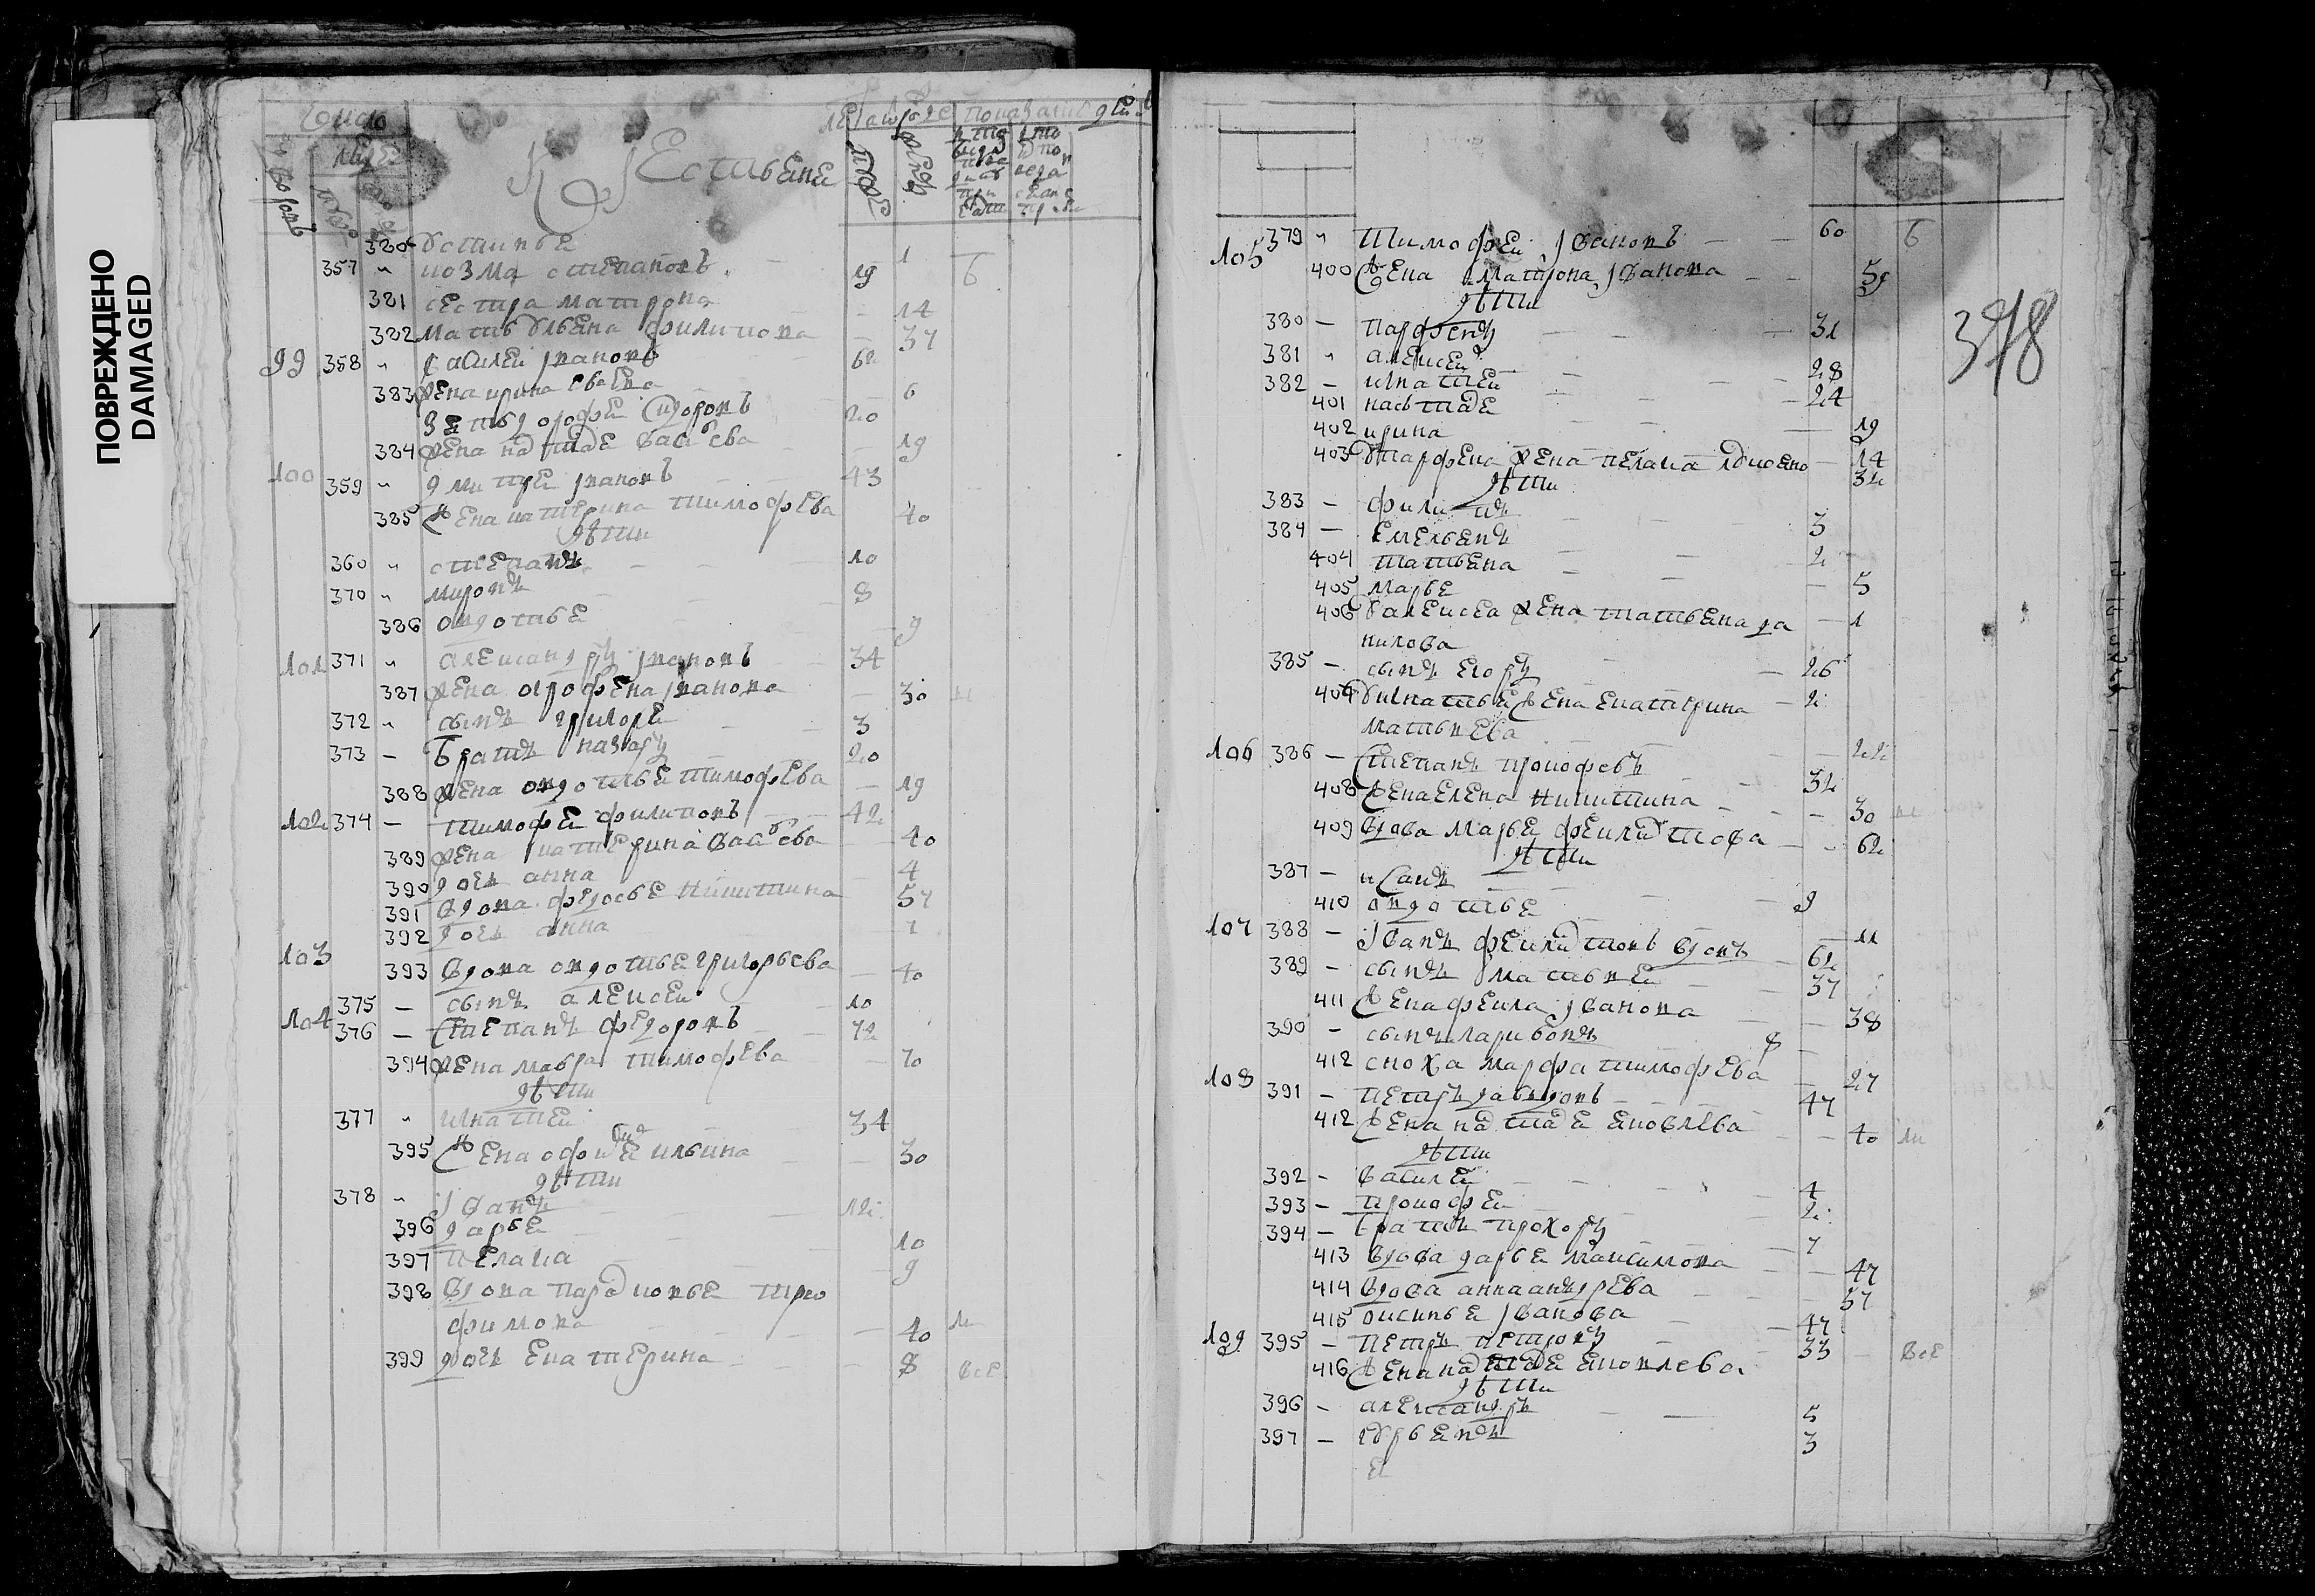 ПОВРЕЖДЕНО
DAMAGED
число
Крестьяне
380 устинье 1
357 " козма степановъ 19 б
381 сестра матрона 14
382 мать ульяна филипова 37
99 358 " василей ивановъ 62
383 жена ирина 6
зеть дорофей сидоровъ 20
384 жена наталье васильева 19
100 359 " дмитрей ивановъ 43
385 жена катерина тимофеева 40
дѣти
360 " степанъ 10
370 " миронъ 8
386 овдотье 9
101 371 " александръ ивановъ 34
387 жена огрофена иванова 30
372 " сынъ григорей 3
373 — братъ назаръ 20
388 жена овдотье тимофева 19
102 374 — тимофей филиповъ 42
389 жена катерина васильева 40
390 дочь анна 4
391 вдова федосье никитина 57
392 дочь анна 7
103 393 вдова овдотье григорьева 40
375 — сынъ алексей 10
104 376 — степанъ федоровъ 72
394 жена мавра тимофева 70
дѣти
377 " игнатей 34
395 жена офимье ильина 30
дѣти
378 " иванъ 12
396 дарье 10
397 пелагиа 9
398 вдова парасковье трио
фимова 40
399 дочь екатерина 8 все
105 379 " тимофей ивановъ 60 б
400 жена матрона иванова 59
378
дѣти
380 — парфенъ 31
381 " алексей 28
382 — игнатей 24
401 настасе
402 ирина 19
403 у парфена жена пелагиа 14
дѣти 32
383 — филипъ 3
384 — емельянъ 2
404 татьяна
405 марье 5
406 у алексеа жена татьяна да 1
нилова
385 — сынъ егоръ 26
407 у игнатье жена екатерина 2
матвеева
106 386 — степанъ прокофевъ 22
408 жена елена никитина 32 30
409 вдова марье феилатова 62
дѣти
387 — исакъ
410 овдотье 9
107 388 — иванъ феилатовъ вдовъ 11
389 — сынъ матвей 62 37
411 жена феила иванова 38
390 — сынъ ларивонъ 8
412 сноха марфа тимофева 27
108 391 — петръ давыдовъ 47
412 жена наталье яковлева 40
дѣти
392 — василей 4
393 — прокофей 2
394 — братъ прохоръ 7
413 вдова дарье максимова 47
414 вдова анна андрева 57
415 оксинье иванова 47
109 395 — петръ петровъ 33 все
416 жена наталье яковлева
дѣти
396 — александръ 5
397 — 3